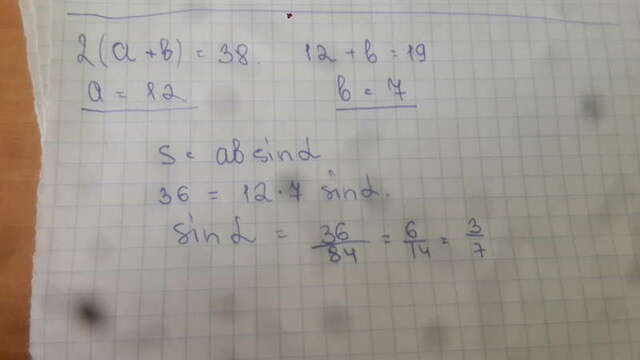 2(a+b) = 38. 12 + b = 19
a = 12 b = 7
S = ab sinα
36 = 12·7 sinα.
sinα = 36/84 = 6/14 = 3/7